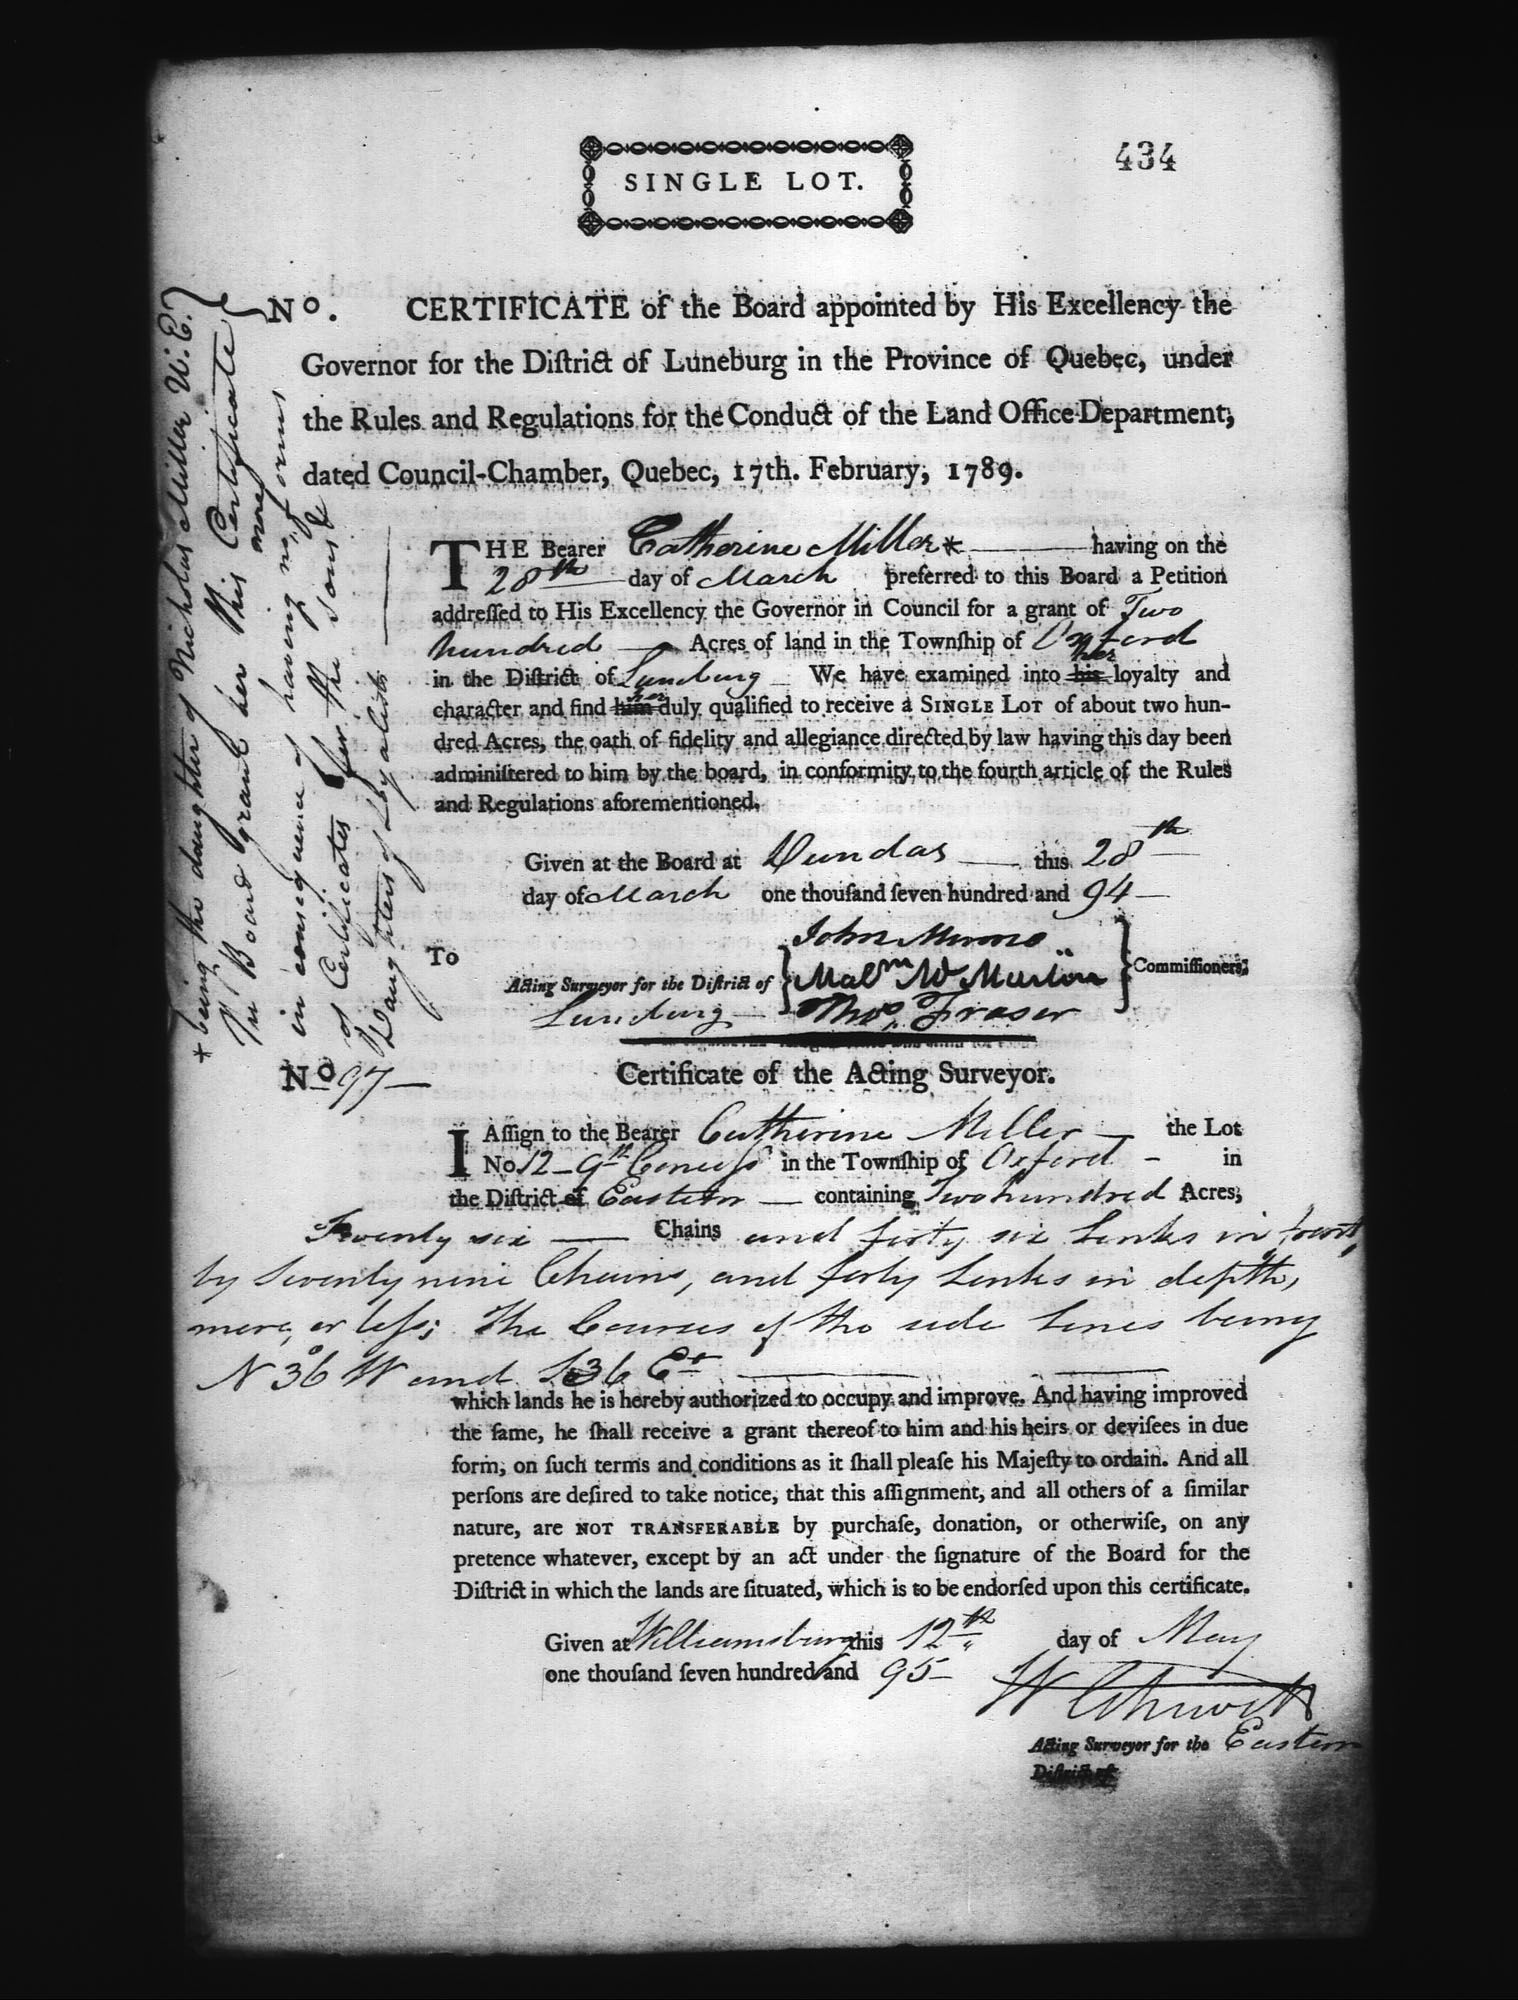 434
SINGLE LOT.
No. CERTIFICATE of the Board appointed by His Excellency the
Governor for the Diſtrict of Luneburg in the Province of Quebec, under
the Rules and Regulations for the Conduct of the Land Office Department,
dated Council-Chamber, Quebec, 17th. February, 1789.
THE Bearer Catherine Miller * having on the
28th day of March preferred to this Board a Petition
addreſſed to His Excellency the Governor in Council for a grant of Two
hundred Acres of land in the Townſhip of Oxford
in the Diſtrict of Luneburg We have examined into his her loyalty and
character and find him her duly qualified to receive a SINGLE LOT of about two hun-
dred Acres, the oath of fidelity and allegiance directed by law having this day been
adminiſtered to him by the board, in conformity to the fourth article of the Rules
and Regulations aforementioned.
Given at the Board at Dundas this 28th
day of March one thouſand ſeven hundred and 94
John Munro
To
Acting Surveyor for the Diſtrict of Malm McMartin Commiſſioners,
Luneburg Thos Fraser
* being the daughter of Nicholas Miller U.E.
The Board grant her this Certificate
in consequence of having no more forms
of Certificates for the sons &
Daughters of Loyalists
No 97
Certificate of the Acting Surveyor.
I Aſſign to the Bearer Catherine Miller the Lot
No. 12 9th Conceſs in the Townſhip of Oxford in
the Diſtrict of Eastern containing Two hundred Acres,
Twenty six Chains and forty six Links in front,
by Seventy nine Chains, and forty Links in depth,
more, or leſs; The Courses of the side Lines being
N 36° W and S 36 Et
which lands he is hereby authorized to occupy and improve. And having improved
the ſame, he ſhall receive a grant thereof to him and his heirs or deviſees in due
form, on ſuch terms and conditions as it ſhall pleaſe his Majeſty to ordain. And all
perſons are deſired to take notice, that this aſſignment, and all others of a ſimilar
nature, are NOT TRANSFERABLE by purchaſe, donation, or otherwiſe, on any
pretence whatever, except by an act under the ſignature of the Board for the
Diſtrict in which the lands are ſituated, which is to be endorſed upon this certificate.
Given at Williamsburg this 12th day of May
one thouſand ſeven hundred and 95
W Chewett
Acting Surveyor for the Eastern
Diſtrict of